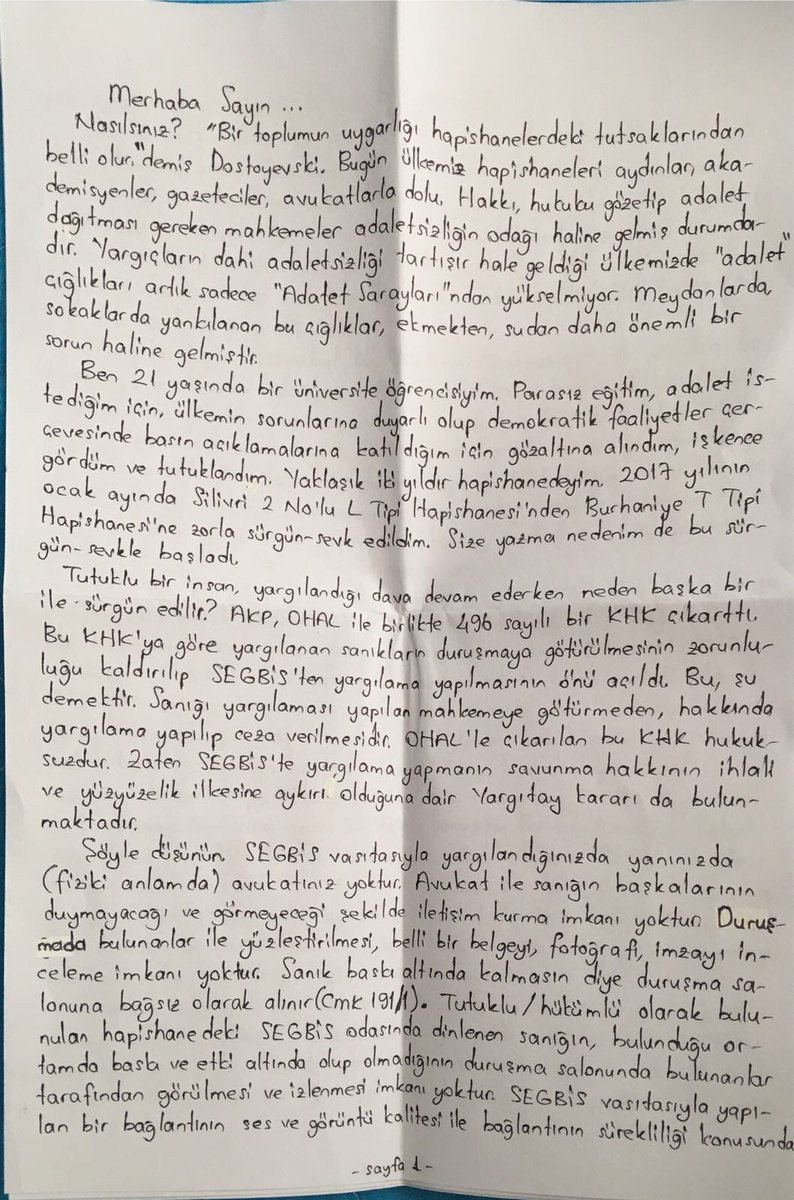 Merhaba Sayın ...
Nasılsınız? "Bir toplumun uygarlığı hapishanelerdeki tutsaklarından
belli olur." demiş Dostoyevski. Bugün ülkemiz hapishaneleri aydınlar, aka-
demisyenler, gazeteciler, avukatlarla dolu. Hakkı, hukuku gözetip adalet
dağıtması gereken mahkemeler adaletsizliğin odağı haline gelmiş durumda-
dır. Yargıçların dahi adaletsizliği tartışır hale geldiği ülkemizde "adalet"
çığlıkları artık sadece "Adalet Sarayları"ndan yükselmiyor. Meydanlarda,
sokaklarda yankılanan bu çığlıklar, ekmekten, sudan daha önemli bir
sorun haline gelmiştir.
Ben 21 yaşında bir üniversite öğrencisiyim. Parasız eğitim, adalet is-
tediğim için, ülkemin sorunlarına duyarlı olup demokratik faaliyetler çer-
çevesinde basın açıklamalarına katıldığım için gözaltına alındım, işkence
gördüm ve tutuklandım. Yaklaşık iki yıldır hapishanedeyim. 2017 yılının
ocak ayında Silivri 2 No'lu L Tipi Hapishanesi'nden Burhaniye T Tipi
Hapishanesi'ne zorla sürgün-sevk edildim. Size yazma nedenim de bu sür-
gün-sevkle başladı.
Tutuklu bir insan, yargılandığı dava devam ederken neden başka bir
ile sürgün edilir? AKP, OHAL ile birlikte 496 sayılı bir KHK çıkarttı.
Bu KHK'ya göre yargılanan sanıkların duruşmaya götürülmesinin zorunlu-
luğu kaldırılıp SEGBİS'ten yargılama yapılmasının önü açıldı. Bu, şu
demektir. Sanığı yargılaması yapılan mahkemeye götürmeden, hakkında
yargılama yapılıp ceza verilmesidir. OHAL'le çıkarılan bu KHK hukuk-
suzdur. Zaten SEGBİS'te yargılama yapmanın savunma hakkının ihlali
ve yüzyüzelik ilkesine aykırı olduğuna dair Yargıtay kararı da bulun-
maktadır.
Şöyle düşünün. SEGBİS vasıtasıyla yargılandığınızda yanınızda
(fiziki anlamda) avukatınız yoktur. Avukat ile sanığın başkalarının
duymayacağı ve görmeyeceği şekilde iletişim kurma imkanı yoktur. Duruş-
mada bulunanlar ile yüzleştirilmesi, belli bir belgeyi, fotoğrafı, imzayı in-
celeme imkanı yoktur. Sanık baskı altında kalmasın diye duruşma sa-
lonuna bağsız olarak alınır (Cmk 191/1). Tutuklu/hükümlü olarak bulu-
nulan hapishanedeki SEGBİS odasında dinlenen sanığın, bulunduğu or-
tamda baskı ve etki altında olup olmadığının duruşma salonunda bulunanlar
tarafından görülmesi ve izlenmesi imkanı yoktur. SEGBİS vasıtasıyla yapı-
lan bir bağlantının ses ve görüntü kalitesi ile bağlantının sürekliliği konusunda
- sayfa 1 -